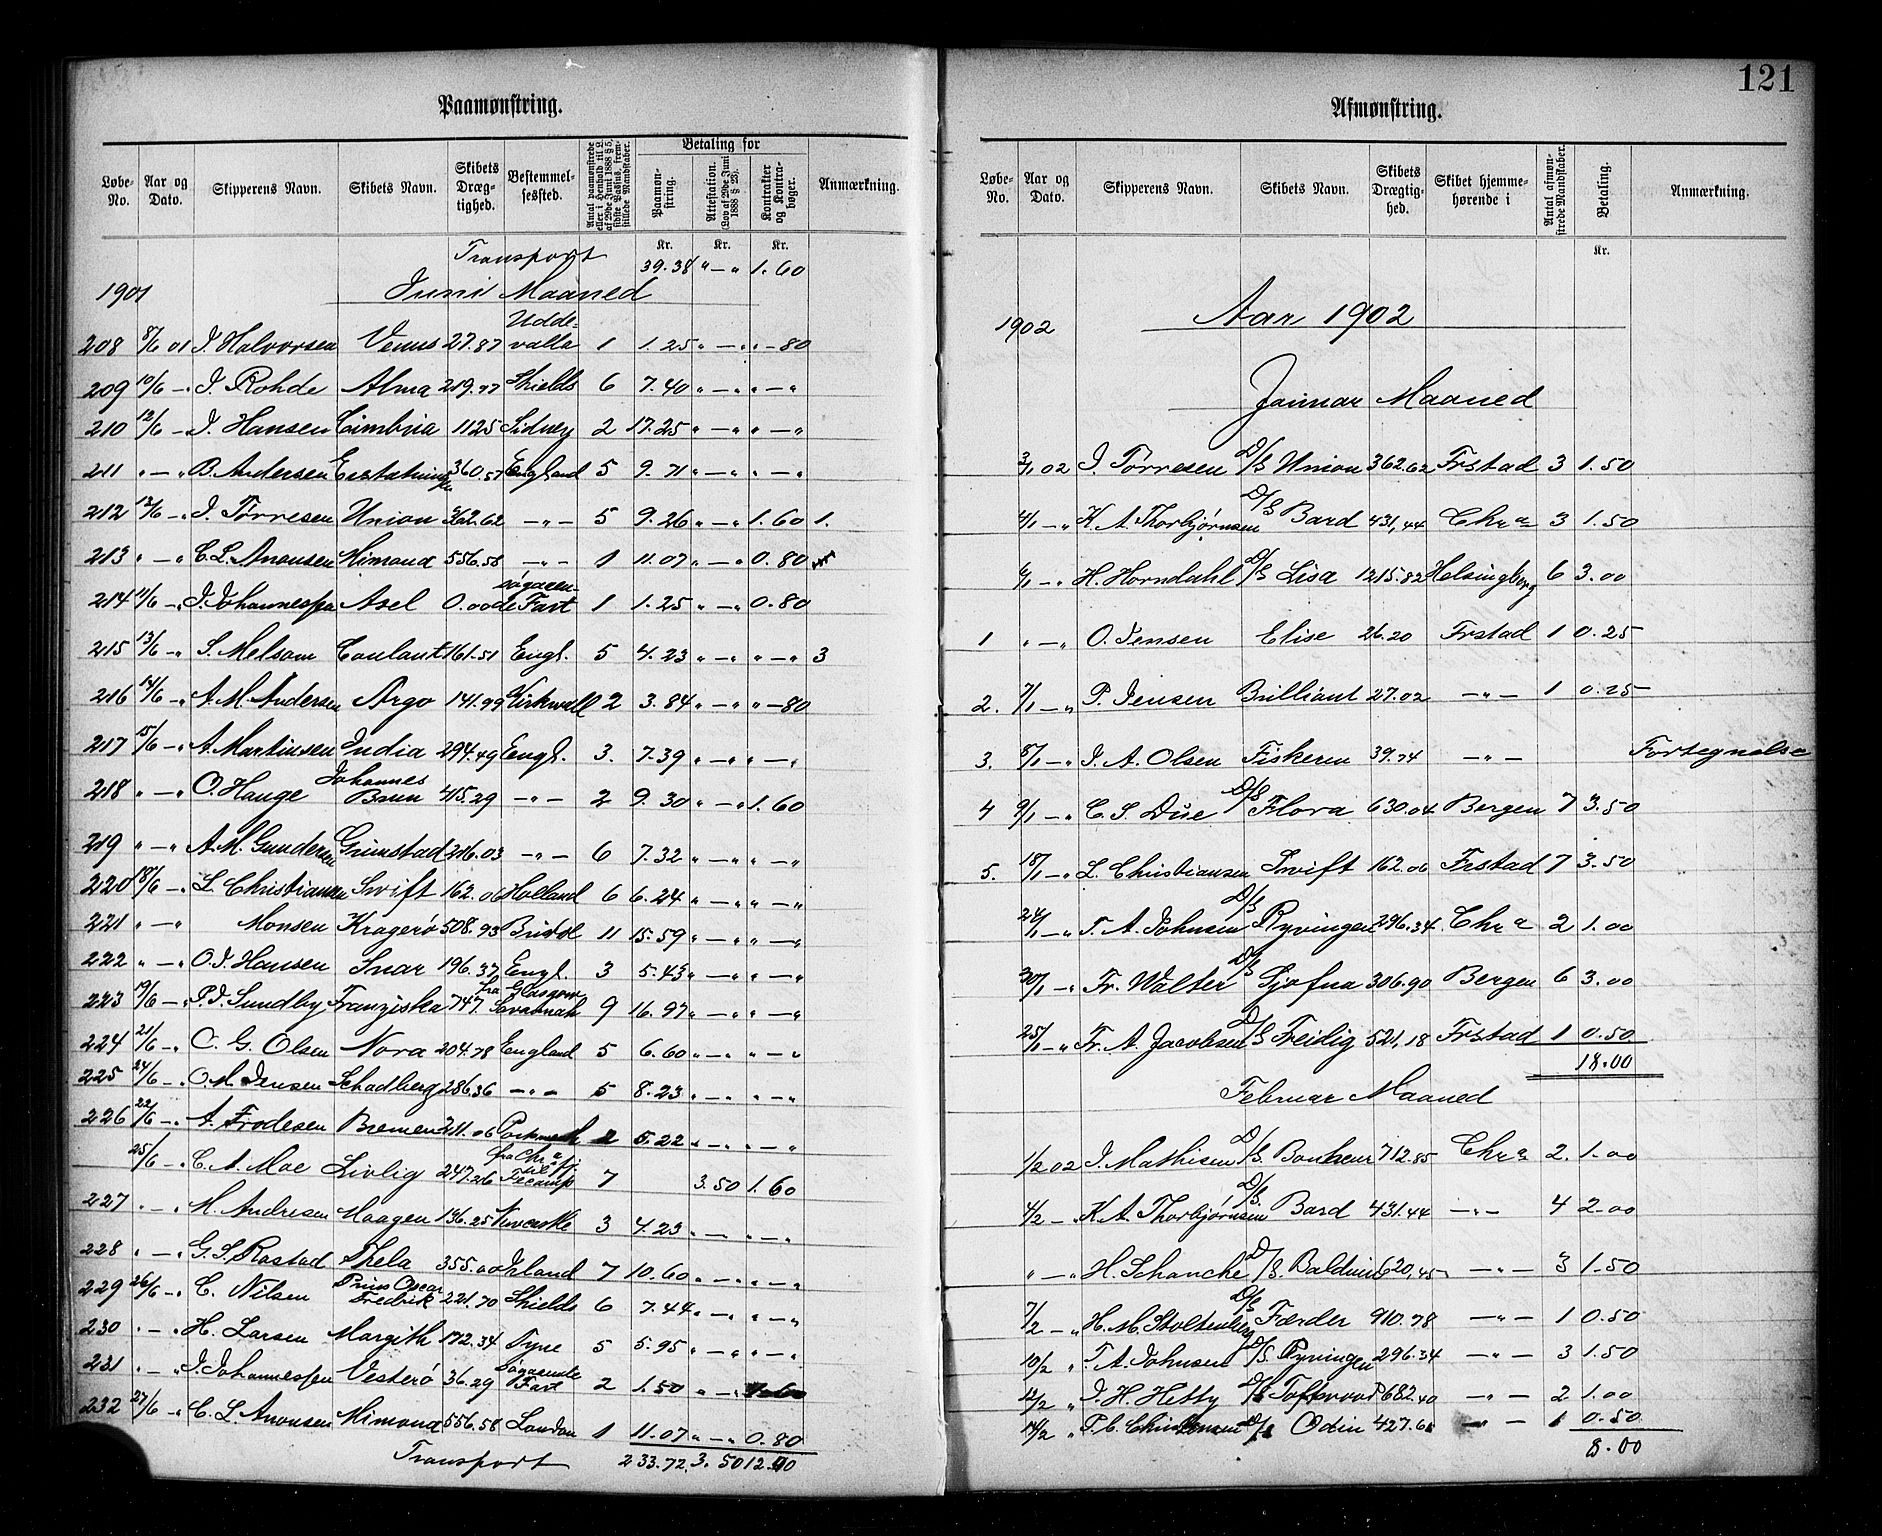 121
Paamønstring.
Løbe-No. Aar og Dato. Skipperens Navn. Skibets Navn. Skibets Dræg-tighed. Bestemmel-sessted. Betaling for Paamøn-string. Attestation. (Lov af 29de Juni 1888 § 25). Kontrakter og Kontra-bøger. Anmærkning.
Kr. Kr. Kr.
Transport 39.38 " — " 1.60
1901 Juni Maaned
208 8/6 01 J. Halvorsen Venus 27.87 Udde-valla 1 1.25 " — " " — 80
209 10/6 — " J. Rohde Alma 219.77 Shields 6 7.40 " — " " — "
210 12/6 — " J. Hansen Cimbria 1125 Sidney 2 17.25 " — " " — "
211 " — " B. Andersen 360.57 England 5 9.71 " — " " — "
212 12/6 — " J. Tørresen Union 362.62 — " — 5 9.26 " — " 1.60 1.
213 " — " C. L. Anonsen Mimona 556.58 — " — 1 11.07 " — " 0.80
214 11/6 — " J. Johannessen Axel 0.00 søgaaen-de Fart 1 1.25 " — " 0.80
215 13/6 — " S. Melsom Coulant 161.51 Engl. 5 4.23 " — " " — " 3
216 14/6 — " A. M. Andersen Argo 141.99 Kirkwall 2 3.84 " — " " — 80
217 15/6 — " A. Martinsen India 294.49 Engl. 3. 7.39 " — " " — "
218 " — " O. Hauge Johannes Brun 415.29 — " — 2 9.30 " — " 1.60
219 " — " A. M. Gundersen Grimstad 216.03 — " — 6 7.32 " — " " — "
220 18/6 — " L. Christiansen Swift 162.06 Holland 6 6.24 " — " " — "
221 " — " Monsen Kragerø 508.93 Bristol 11 15.59 " — " " — "
222 " — " O. J. Hansen Snar 196.37 Engl. 3 5.43 " — " " — "
223 19/6 — " P. J. Sundby Franziska 747. fra Glasgow Savannah 9 16.97 " — " " — "
224 21/6 — " C. G. Olsen Nora 204.78 England 5 6.60 " — " " — "
225 24/6 — " O. M. Jensen Schadberg 286.36 — " — 5 8.23 " — " " — "
226 22/6 — " A. Frodesen Bremen 211.06 2 5.22 " — " " — "
25/6 — " C. A. Moe Livlig 247.26 fra Chra til Fecamp 7 3.50 1.60
227 " — " M. Andresen Haagen 136.25 Newcastle 3 4.23 " — " " — "
228 " — " G. S. Rostad Thela 355.00 Island 7 10.60 " — " " — "
229 26/6 — " C. Nilsen Prins Oscar Fredrik 221.70 Shields 6 7.44 " — " " — "
230 " — " H. Larsen Margith 172.34 Tyne 5 5.95 " — " " — "
231 " — " J. Johannessen Vesterø 36.29 søgaaende Fart 2 1.50 " — "
232 27/6 — " C. L. Anonsen Mimona 556.58 London 1 11.07 " — " 0.80
Transport 233.72 3.50
Afmønstring.
Løbe-No. Aar og Dato. Skipperens Navn. Skibets Navn. Skibets Drægtig-hed. Skibet hjemme-hørende i Antal afmøn-strede Mandskaber. Betaling. Anmærkning.
Kr.
1902 Aar 1902
Januar Maaned
3/1 02 J. Tørresen D/S Union 362.62 Frstad 3 1.50
4/1 — " K. A. Thorbjørnsen D/S Bard 431,44 Chra 3 1.50
6/1 — " H. Horndahl D/S Lisa 1215.82 Helsingborg 6 3.00
1 " — " O. Jensen Elise 26.20 Frstad 1 0.25
2. 7/1 — " P. Jensen Brilliant 27.02 — " — 1 0.25
3. 8/1 — " J. A. Olsen Fiskeren 39.74 — " — Fortegnelse
4 9/1 — " C. S. Due D/S Flora 630.04 Bergen 7 3.50
5. 18/1 — " L. Christiansen Swift 162.06 Frstad 7 3.50
24/1 — " T. A. Johnsen D/S Ryvingen 296.34 Chra 2 1.00
20/1 — " Fr. Walter D/S Sjofna 306.90 Bergen 6 3.00
25/1 — " Fr. A. Jacobsen D/S Freidig 521,18 Frstad 1 0.50
18.00
Februar Maaned
1/2 02 J. Mathisen D/S Bonheur 712.85 Chra 2. 1.00
4/2 — " K. A. Thorbjørnsen D/S. Bard 431.44 — " — 4 2.00
" — " H. Schanche D/S. Baldwin 620,45 — " — 3 1.50
7/2 — " H. M. Stoltenberg D/S Færder 910.78 — " — 1 0.50
10/2 " T. A. Johnsen D/S. Ryvingen 296.34 — " — 3 1.50
12/2 " J. H. Hetty D/S 682.40 — " — 2 1.00
14/2 " T. C. Christensen D/S Odin 427.61 — " — 1 0.50
8.00